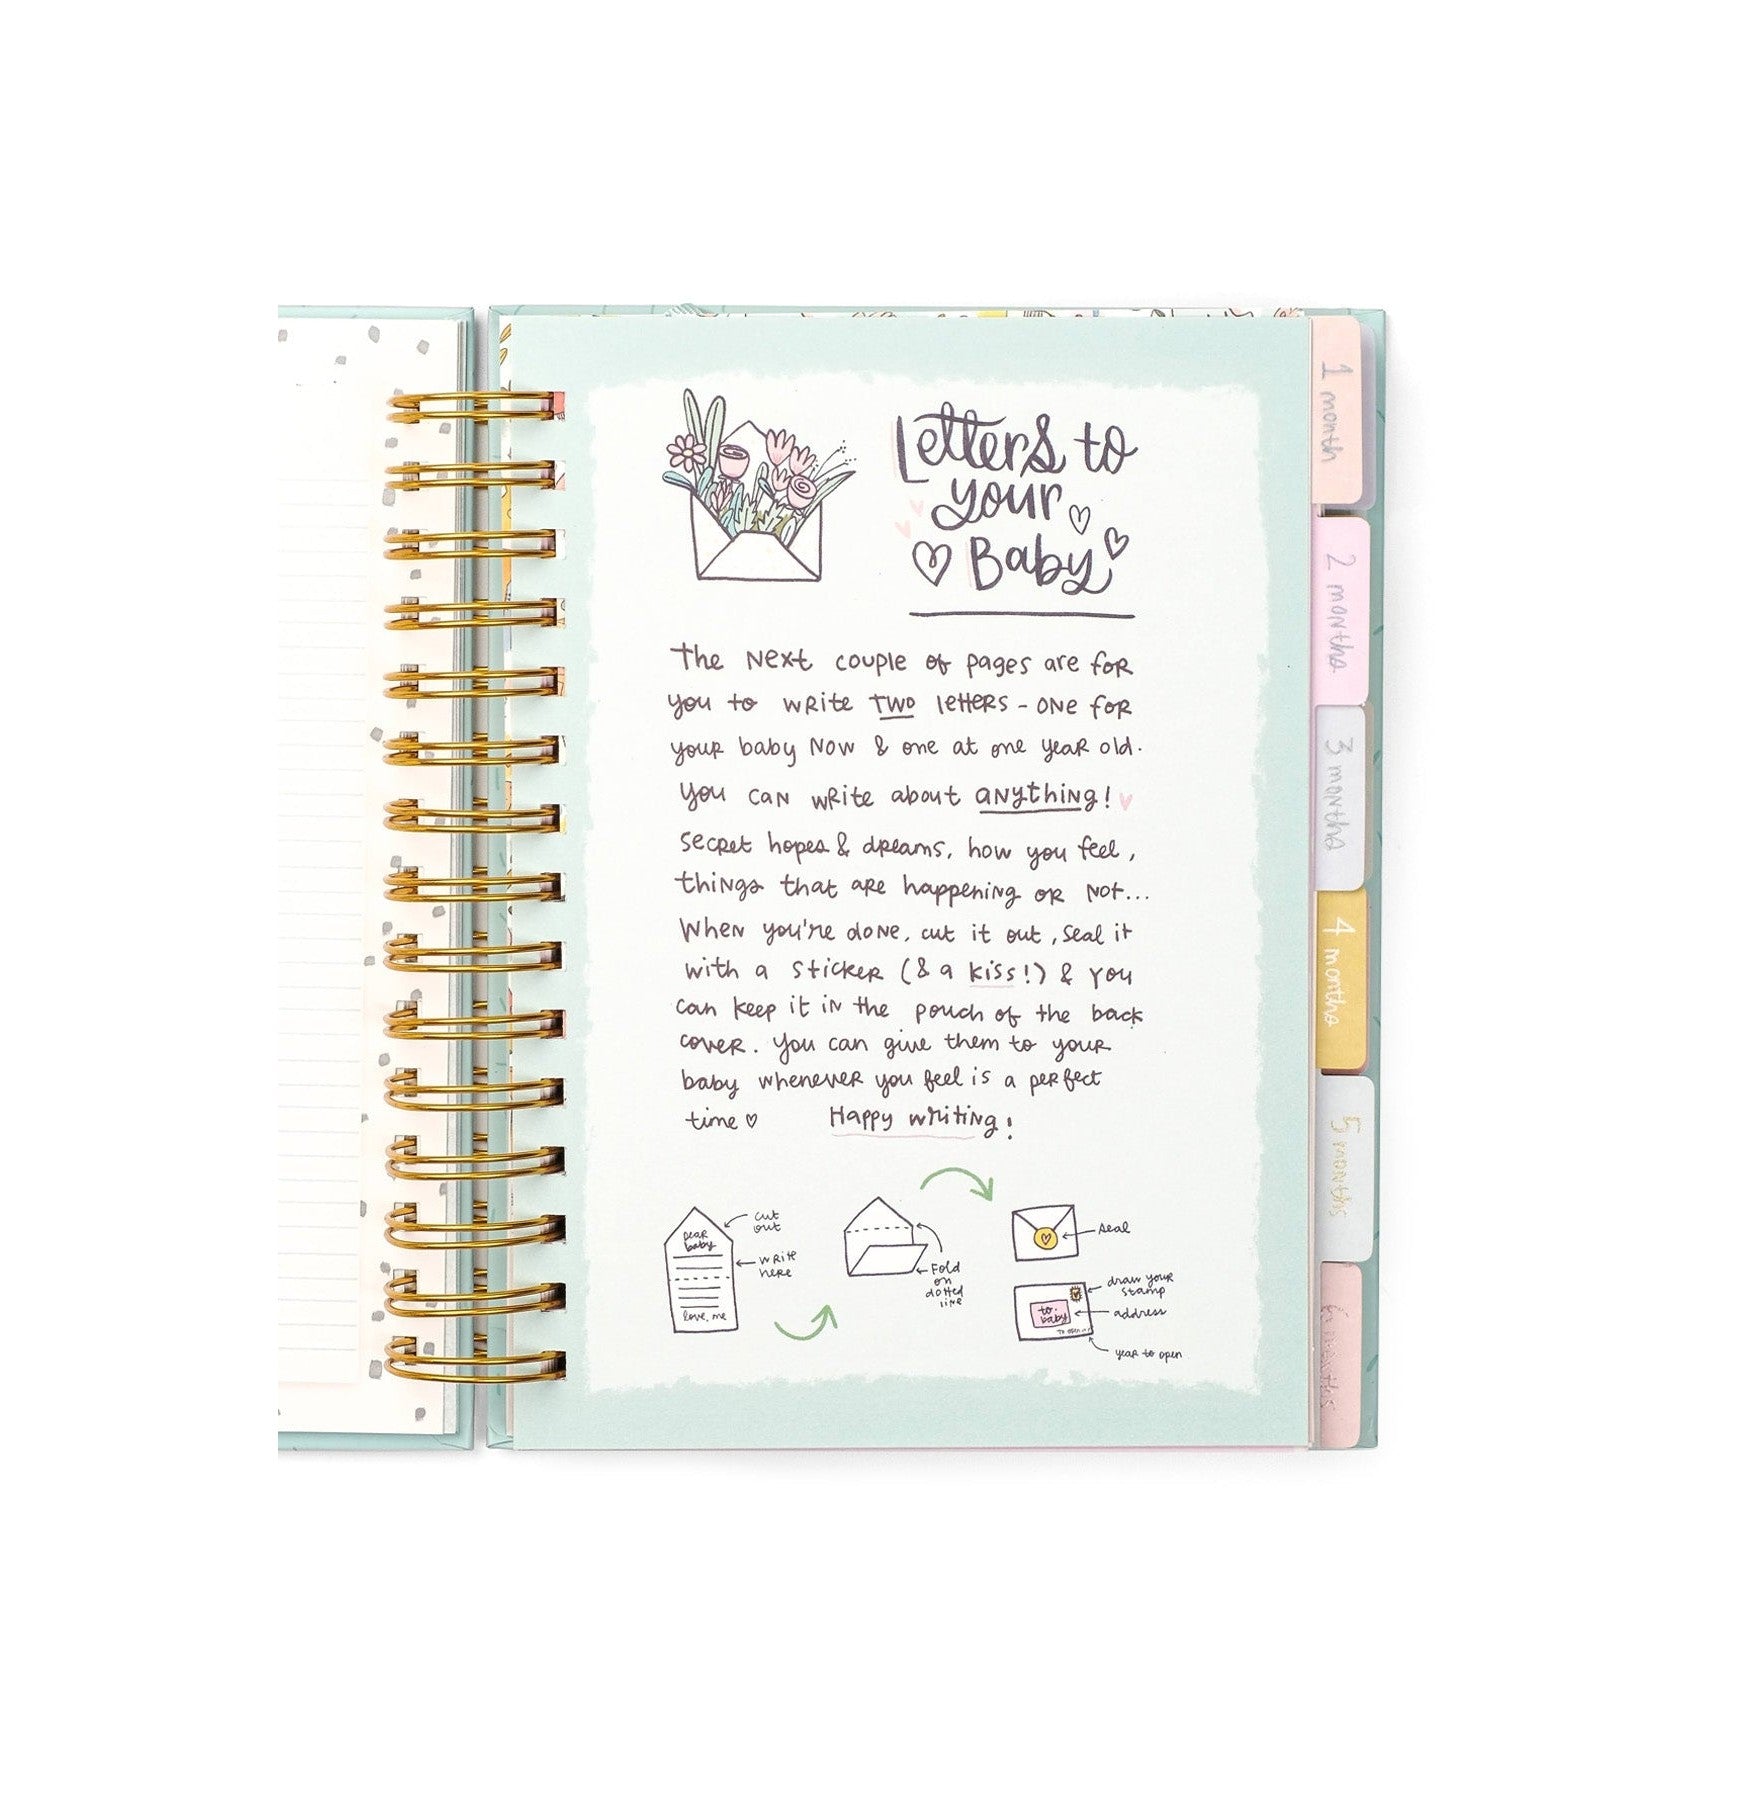 Letters to
your
Baby
The next couple of pages are for
you to write two letters - one for
your baby now & one at one year old.
you can write about anything!
secret hopes & dreams, how you feel,
things that are happening or not...
When you're done, cut it out, seal it
with a sticker (& a kiss!) & you
can keep it in the pouch of the back
cover. you can give them to your
baby whenever you feel is a perfect
time
Happy writing!
dear
baby
love, me
cut
out
write
here
Fold
on
dotted
line
seal
draw your
stamp
to:
baby
address
to open in
year to open
1 month
2 months
3 months
4 months
5 months
6 months